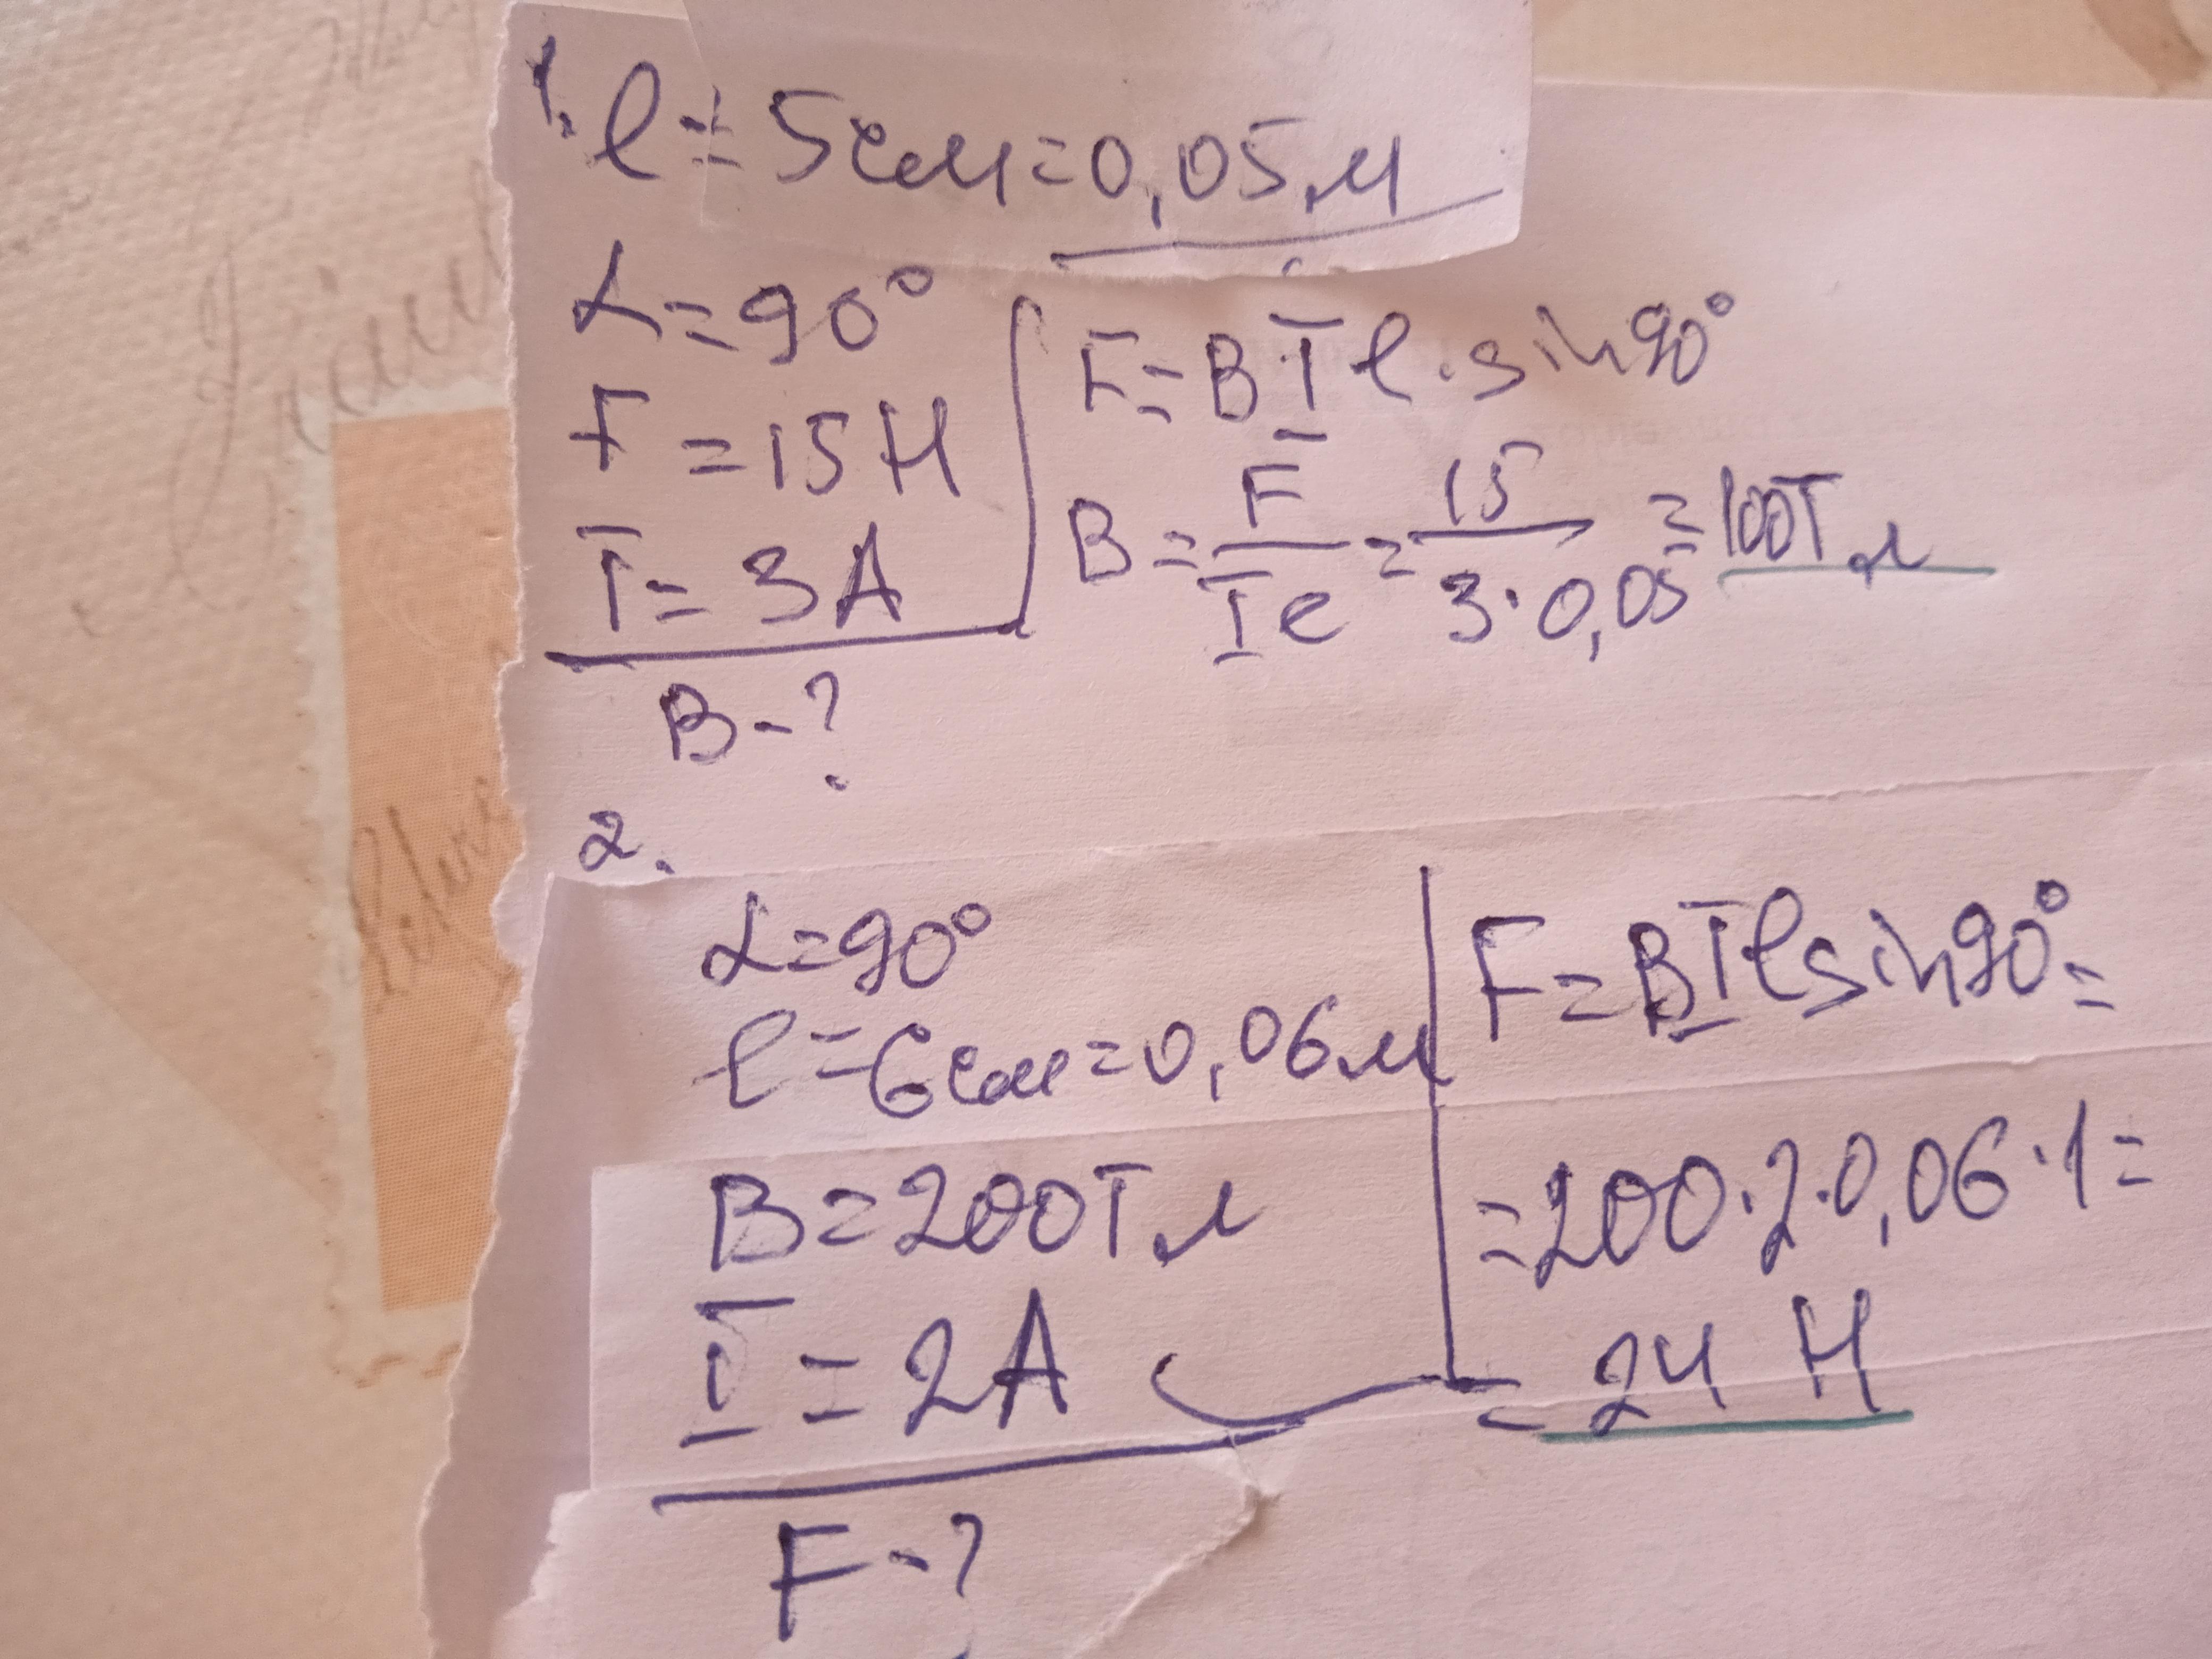 1. l = 5см = 0,05м
α = 90°
F = 15 Н
I = 3 А
B - ?
F = B I l · sin 90°
B = F / I l = 15 / 3 · 0,05 = 100Тл
2.
α = 90°
l = 6см = 0,06м
B = 200Тл
I = 2А
F - ?
F = B I l sin 90° =
= 200 · 2 · 0,06 · 1 =
= 24 Н